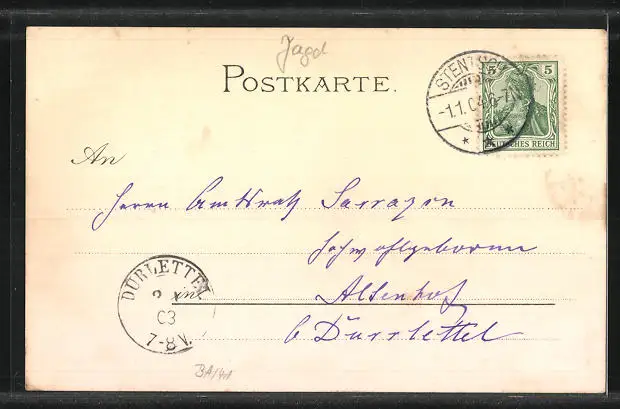 Jagd
POSTKARTE.
STENTSCH
-1.1.04.6-7N.
5 5
DEUTSCHES REICH
An
Herrn Amtsrath Sarrazin
Hochwohlgeboren
in Altenhof
b Dürrlettel
DÜRLETTEL
2
03
7-8V.